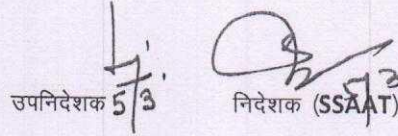 उपनिदेशक 5/3 निदेशक (SSAAT) 5/3